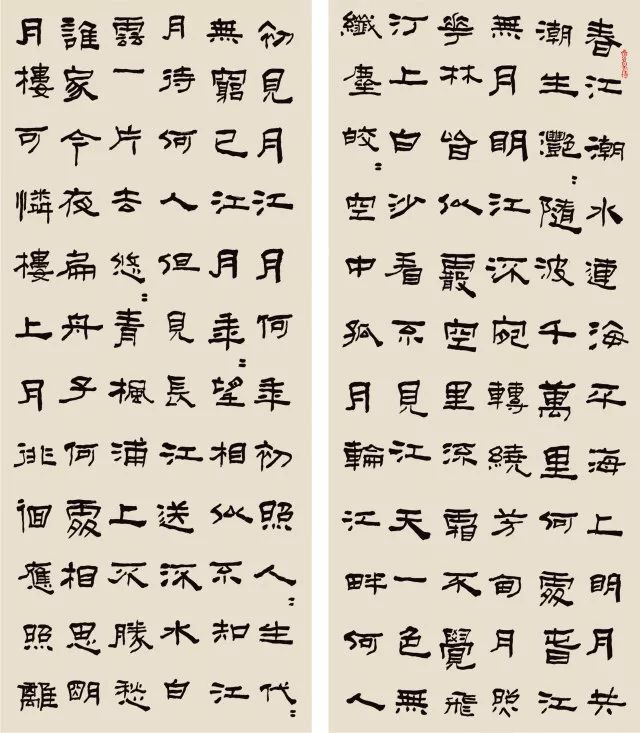 春江潮水連海平海上明月共
潮生灩〻隨波千萬里何處春江
無月明江流宛轉繞芳甸月照
華林皆似霰空里流霜不覺飛
汀上白沙看不見江天一色無
纖塵皎〻空中孤月輪江畔何人
初見月江月何年初照人〻生代〻
無窮已江月年〻望相似不知江
月待何人但見長江送流水白
雲一片去悠〻青楓浦上不勝愁
誰家今夜扁舟子何處相思明
月樓可憐樓上月徘徊應照離